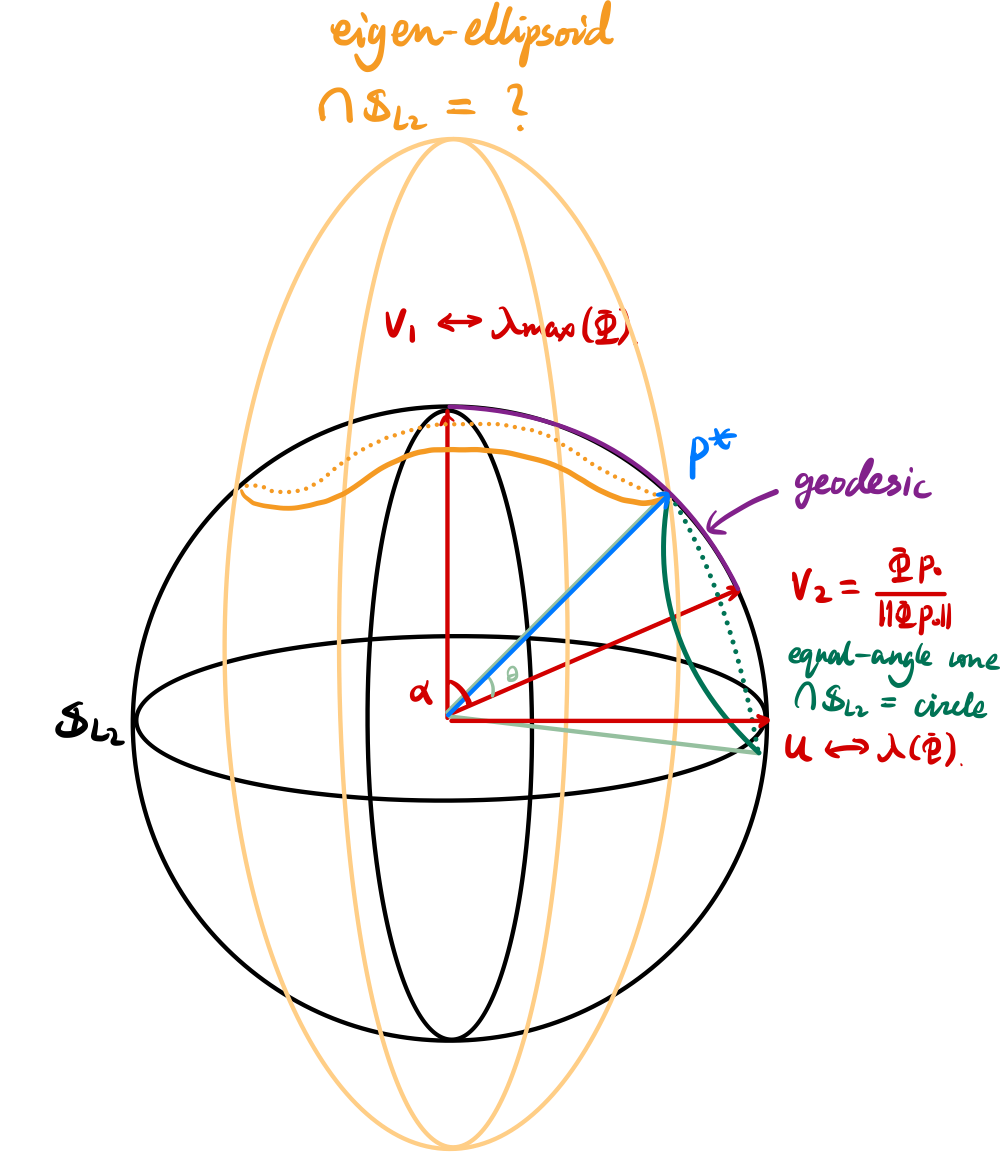 eigen-ellipsoid
∩ 𝕊_{L2} = ?
V₁ ↔ λmax(Φ).
P*
geodesic
V₂ = Φp₀ / ‖Φp₀‖
equal-angle cone
∩ 𝕊_{L2} = circle
u ↔ λ(Φ).
α
θ
𝕊_{L2}